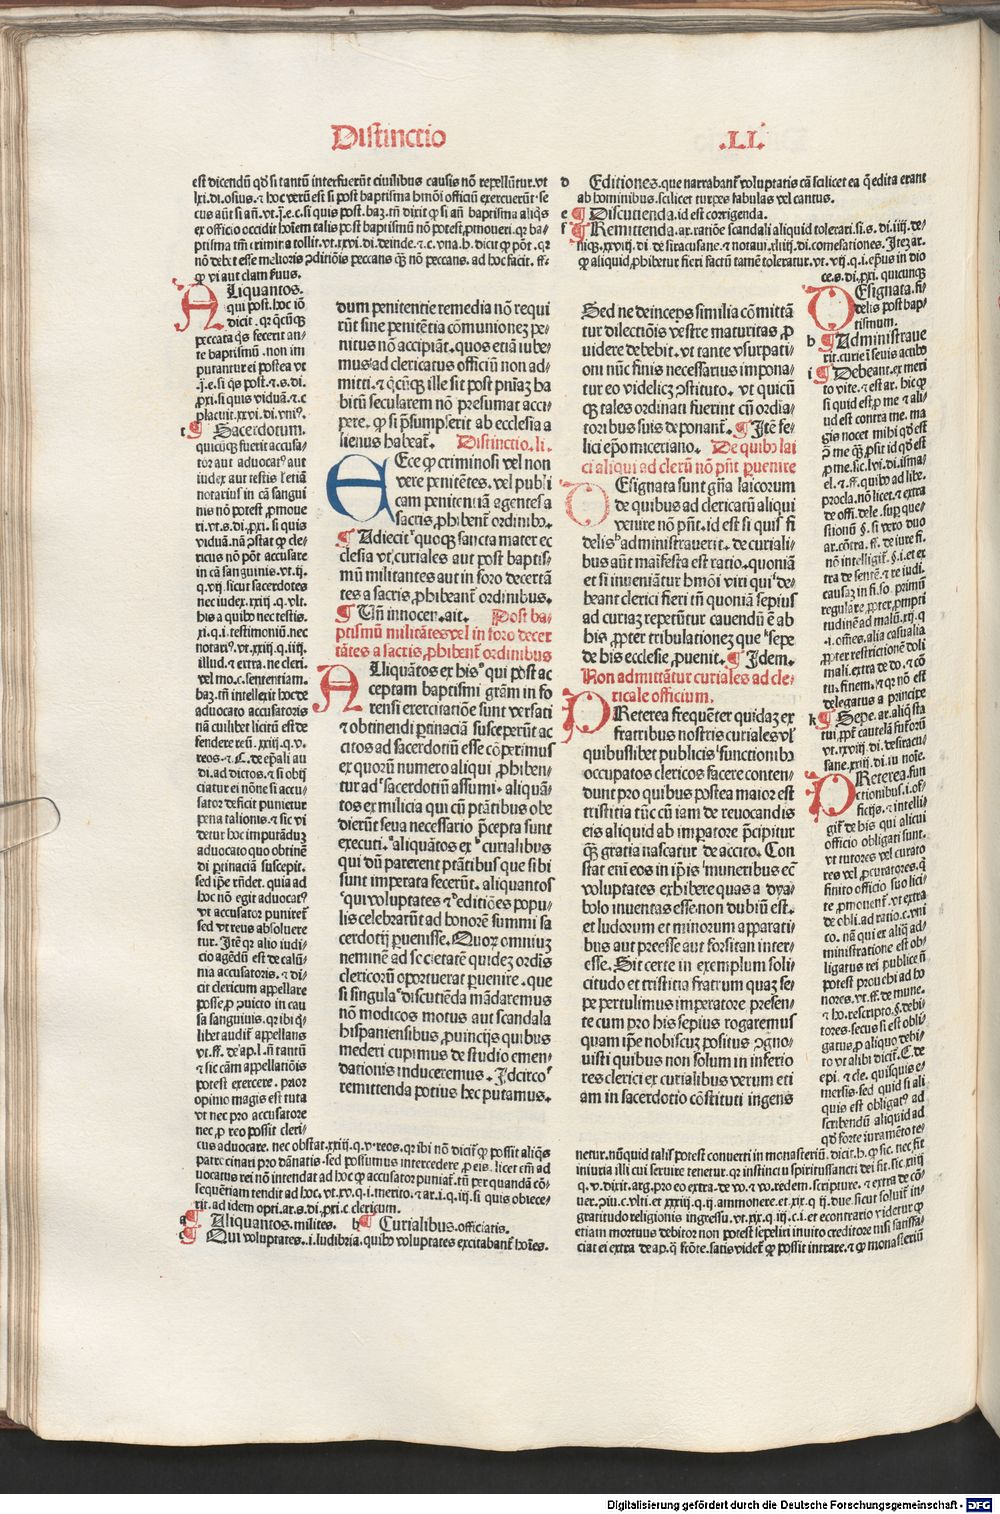 Distinctio .LI.
est dicendū qđ si tantū interfuerūt ciuilibus causis nō repellūtur. vt
lxi. di. osius. ⁊ hoc verū est si post baptisma
cus aūt si añ. vt j. e. c. si quis post. baz. tñ dixit ꝙ si añ baptisma aliqs
ex officio occidit
ptisma tm̄ crimina tollit. vt. xxvi. di. deinde. ⁊ c. vna. b. dicit
nō debꝫ esse melioris
ꝙ vi aut clam
ALiquantos.
qui post. hoc iō
dicit
peccata qs fecerit an-
te baptismū .non im
putantur ei postea vt
.j. e. si qs post. ⁊ .s. di.
si quis viduā. ⁊ c
placuit. xxvi. di. vniꝰ.
Sacerdotum.
quicūqꝫ fuerit accusa/
tor aut aduocatꝰ aut
iudex aut testis ꝉ etiā
notarius in cā sangui
nis nō potest
ri. vt. s. di. si quis
viduā. nā ꝯstat ꝙ cle-
ricus nō pōt accusare
in cā sanguinis. vt. ij.
q. vij. sicut sacerdotes
nec iudex. xxiij. q. vlt.
his a quibꝰ nec testis.
xi. q. i. testimoniū. nec
notariꝰ. vt. xxiij. q. iiij.
illud. ⁊ extra. ne cleri.
vel mo. c. sententiam.
baz. tñ intellexit hoc de
aduocato accusatoris
nā cuilibet licitū est de
fendere reū. xxiij. q. v.
reos. ⁊ C. de epāli au
di. ad dictos. ⁊ si obij
ciatur ei nōne si accu-
sator deficit punietur
pena talionis. ⁊ sic vi
detur hoc imputādum
aduocato quo obtinē
di ptinaciā suscepit.
sed ipse rñdet. quia ad
hoc nō egit aduocatꝰ
vt accusator
sed vt reus absoluere
tur. Itē qr alio iudi/
cio agēdū est de calū-
nia accusatoris. ⁊ di-
cit clericum appellare
posse ꝓ ꝯuicto in cau
sa sanguinis. qr ibi q-
libet audit appellans
vt. ff. de ap. l. ñ tantū
⁊ sic cām appellatiōis
potest exercere. prior
opinio magis est tuta
vt nec pro accusatore
nec ꝓ reo possit cleri/
cus aduocare. nec obstat. xxiij. q. v. reos. qr ibi nō dicit ꝙ possit aliqs
patrocinari pro dānatis. sed possumus intercedere ꝓ eis. licet cm̄ ad
uocatus rei nō intendat ad hoc ꝙ accusator
sequētiam tendit ad hoc. vt. xv. q. i. merito. ⁊ ar. i. q. iij. si quis obiece-
rit. ad idem opti. ar. s. di. c clericum.
a Aliquantos. milites. b Curialibus. officiatis.
c Qui voluptates. .i. ludibria. quibꝰ voluptates excitabant
dum penitentie remedia nō requi
rūt sine penitētia cōmunionez pe/
nitus nō accipiāt. quos etiā iube-
mus ad clericatus officiū non ad-
mitti. ⁊ qcūqꝫ ille sit post pniaz ha
bitū secularem nō presumat acci-
pere. ꝙ si psumpserit ab ecclesia a
lienus habeat. Distinctio. li.
ECce ꝙ criminosi vel non
vere penitētes. vel publi
cam penitentiā agentes a
sacris ꝓhibent ordinibꝰ.
Adiecit quoqꝫ sancta mater ec
clesia vt curiales aut post baptis-
mū militantes aut in foro decertā
tes a sacris ꝓhibeant ordinibus.
Uñ innocen. ait. Post ba-
ptismū militātes vel in foro decer
tātes a sacris ꝓhibent ordinibus
ALiquātos ex his qui post ac
ceptam baptismi grām in fo
rensi exercitatiōe sunt versati
⁊ obtinendi ptinaciā susceperūt ac
citos ad sacerdotiū esse cōperimus
ex quorū numero aliqui ꝓhiben/
tur ad sacerdotiū assumi. aliquā-
tos ex milicia qui cū ptātibus obe
dierūt seua necessario pcepta sunt
executi. aliquātos ex curialibus
qui dū parerent ptātibus que sibi
sunt imperata fecerūt. aliquantos
qui voluptates ⁊ editiōes popu-
lis celebrarūt ad honorē summi sa
cerdotij puenisse. Quoꝝ omniuꝫ
neminē ad societatē quidez ordis
clericorū oportuerat puenire. que
si singula discutiēda mādaremus
nō modicos motus aut scandala
hispaniensibus ꝓuincijs quibus
mederi cupimus de studio emen/
dationis induceremus. Idcirco
remittenda potius hec putamus.
d Editiones. que narrabant voluptatis cā scilicet ea q edita erant
ab hominibus. scilicet turpes fabulas vel cantus.
e Discutienda. id est corrigenda.
f Remittenda. ar. ratiōe scandali aliquid tolerari. si. s. di. iiij. de-
niqꝫ. xxviij. di. de siracusane. ⁊ notaui. xliiij. di. comesationes. Itez ar.
ꝙ aliquid ꝓhibetur fieri factū tamē toleratur. vt. vij. q. i. epus in dio
ce. s. di. quicunqꝫ
DEsignata. fi/
delis post bap/
tismum.
h Administraue
rit. curie ī seuis actibꝰ
i Debeant. ex meri
to vite. ⁊ est ar. hic ꝙ
si quid est ꝓ me ⁊ ali/
ud est contra me. ma
gis nocet mihi qđ est
ꝯ me qꝫ ꝓsit id qđ est
ꝓ me. sic. lvi. di. isma-
el. ⁊ ff. quibꝰ ad libe.
procla. nō licet. ⁊ extra
de offi. dele. sup que-
stionū §. si vero duo
ar. cōtra. ff. de iure fi.
nō intelligit. §. i. et ex
tra de sentē. ⁊ re iudi.
causaz in fi. so. primū
regulare ꝓpter
tudinē ad malū. xij. q
.i. omēs. alia casualia
ꝓpter restrictionē doli
mali. extra de do. ⁊ cō
tu. finem. ⁊ qr nō est
delegatus a principe
k Sepe. ar. aliqd sta
tui ꝓpt cautelā futuroꝝ
vt. xxviij. di. de siracu-
sane. xxiij. di. iu noīe.
PReterea. fun
ctionibus. i. of-
ficijs. ⁊ intelli
git de his qui alicui
officio obligati sunt.
vt tutores vel curato
res vel ꝓcuratores. q
finito officio suo lici-
te ꝓmouent. vt extra
de obli. ad ratio. c. vni
co. nā qui ex aliq ad-
ministratione est ob-
ligatus rei publice ñ
potest prouehi ad ho
nores. vt. ff. de mune.
⁊ ho. rescripto. §. debi-
tores. secus si est obli-
gatus ꝓ aliquo debi-
to vt alibi dicit. C. de
epi. ⁊ cle. quisquis e-
mersis. sed quid si ali
quis est obligatꝰ ad
scribendū aliquid ad
qđ forte iuramēto te/
netur. nūquid talis potest conuerti in monasteriū. dicit. h. ꝙ sic. nec fit
iniuria illi cui seruire tenetur. qr instinctu spiritussancti dei fit. sic. xviij
q. v. dixit. arg. pro eo extra. de vo. ⁊ vo. redem. scripture. ⁊ extra de cō-
uer. piu. c. vlti. et. xxxiij. q. ij. ammonere. et. xix. q ij. due. sicut soluit in-
gratitudo religionis ingressu. vt. xix. q. iij. c. i. et econtrario videtur ꝙ
etiam mortuus debitor non potest sepeliri inuito creditore nisi satisfa-
ciat ei extra de ap. q frōte. satis videt ꝙ possit intrare. ⁊ ꝙ monasteriū
Sed ne deinceps similia cōmittā
tur dilectiōis vestre maturitas ꝓ
uidere debebit. vt tante vsurpati-
oni nūc finis necessarius impona-
tur eo videlicꝫ ꝯstituto. vt quicū
qꝫ tales ordinati fuerint cū ordia-
toribus suis deponant. Itē fe-
lici epo miceriano. De quibꝰ lai
ci aliqui ad clerū nō pñt puenire
DEsignata sunt gña laicorum
de quibus ad clericatū aliqui
venire nō pñt. id est si quis fi
delis administrauerit. de curiali-
bus aūt maifesta est ratio. quoniā
et si inueniātur hmōi viri qui de-
beant clerici fieri tñ quoniā sepius
ad curiaz repetūtur cauendū ē ab
his ꝓpter tribulationez que sepe
de his ecclesie ꝓuenit. Idem.
Non admittātur curiales ad cle/
ricale officium.
PReterea frequēter quidaz ex
fratribus nostris curiales vꝉ
quibuslibet publicis functionibꝰ
occupatos clericos facere conten/
dunt pro quibus postea maior est
tristitia cū iam de reuocandis
eis aliquid ab impatore pcipitur
qꝫ gratia nascatur de accito. Con
stat eni eos in ipis muneribus ec̄
voluptates exhibere quas a dya/
bolo inuentas esse. non dubiū est.
et ludorum et minorum apparati-
bus aut preesse aut forsitan inter-
esse. Sit certe in exemplum soli/
citudo et tristitia fratrum quaz se/
pe pertulimus imperatore presen/
te cum pro his sepius rogaremus
quam ipe nobiscuꝫ positus ꝯgno-
uisti quibus non solum in inferio
res clerici ex curialibus verum eti
am in sacerdotio cōstituti ingens
Digitalisierung gefördert durch die Deutsche Forschungsgemeinschaft - DFG